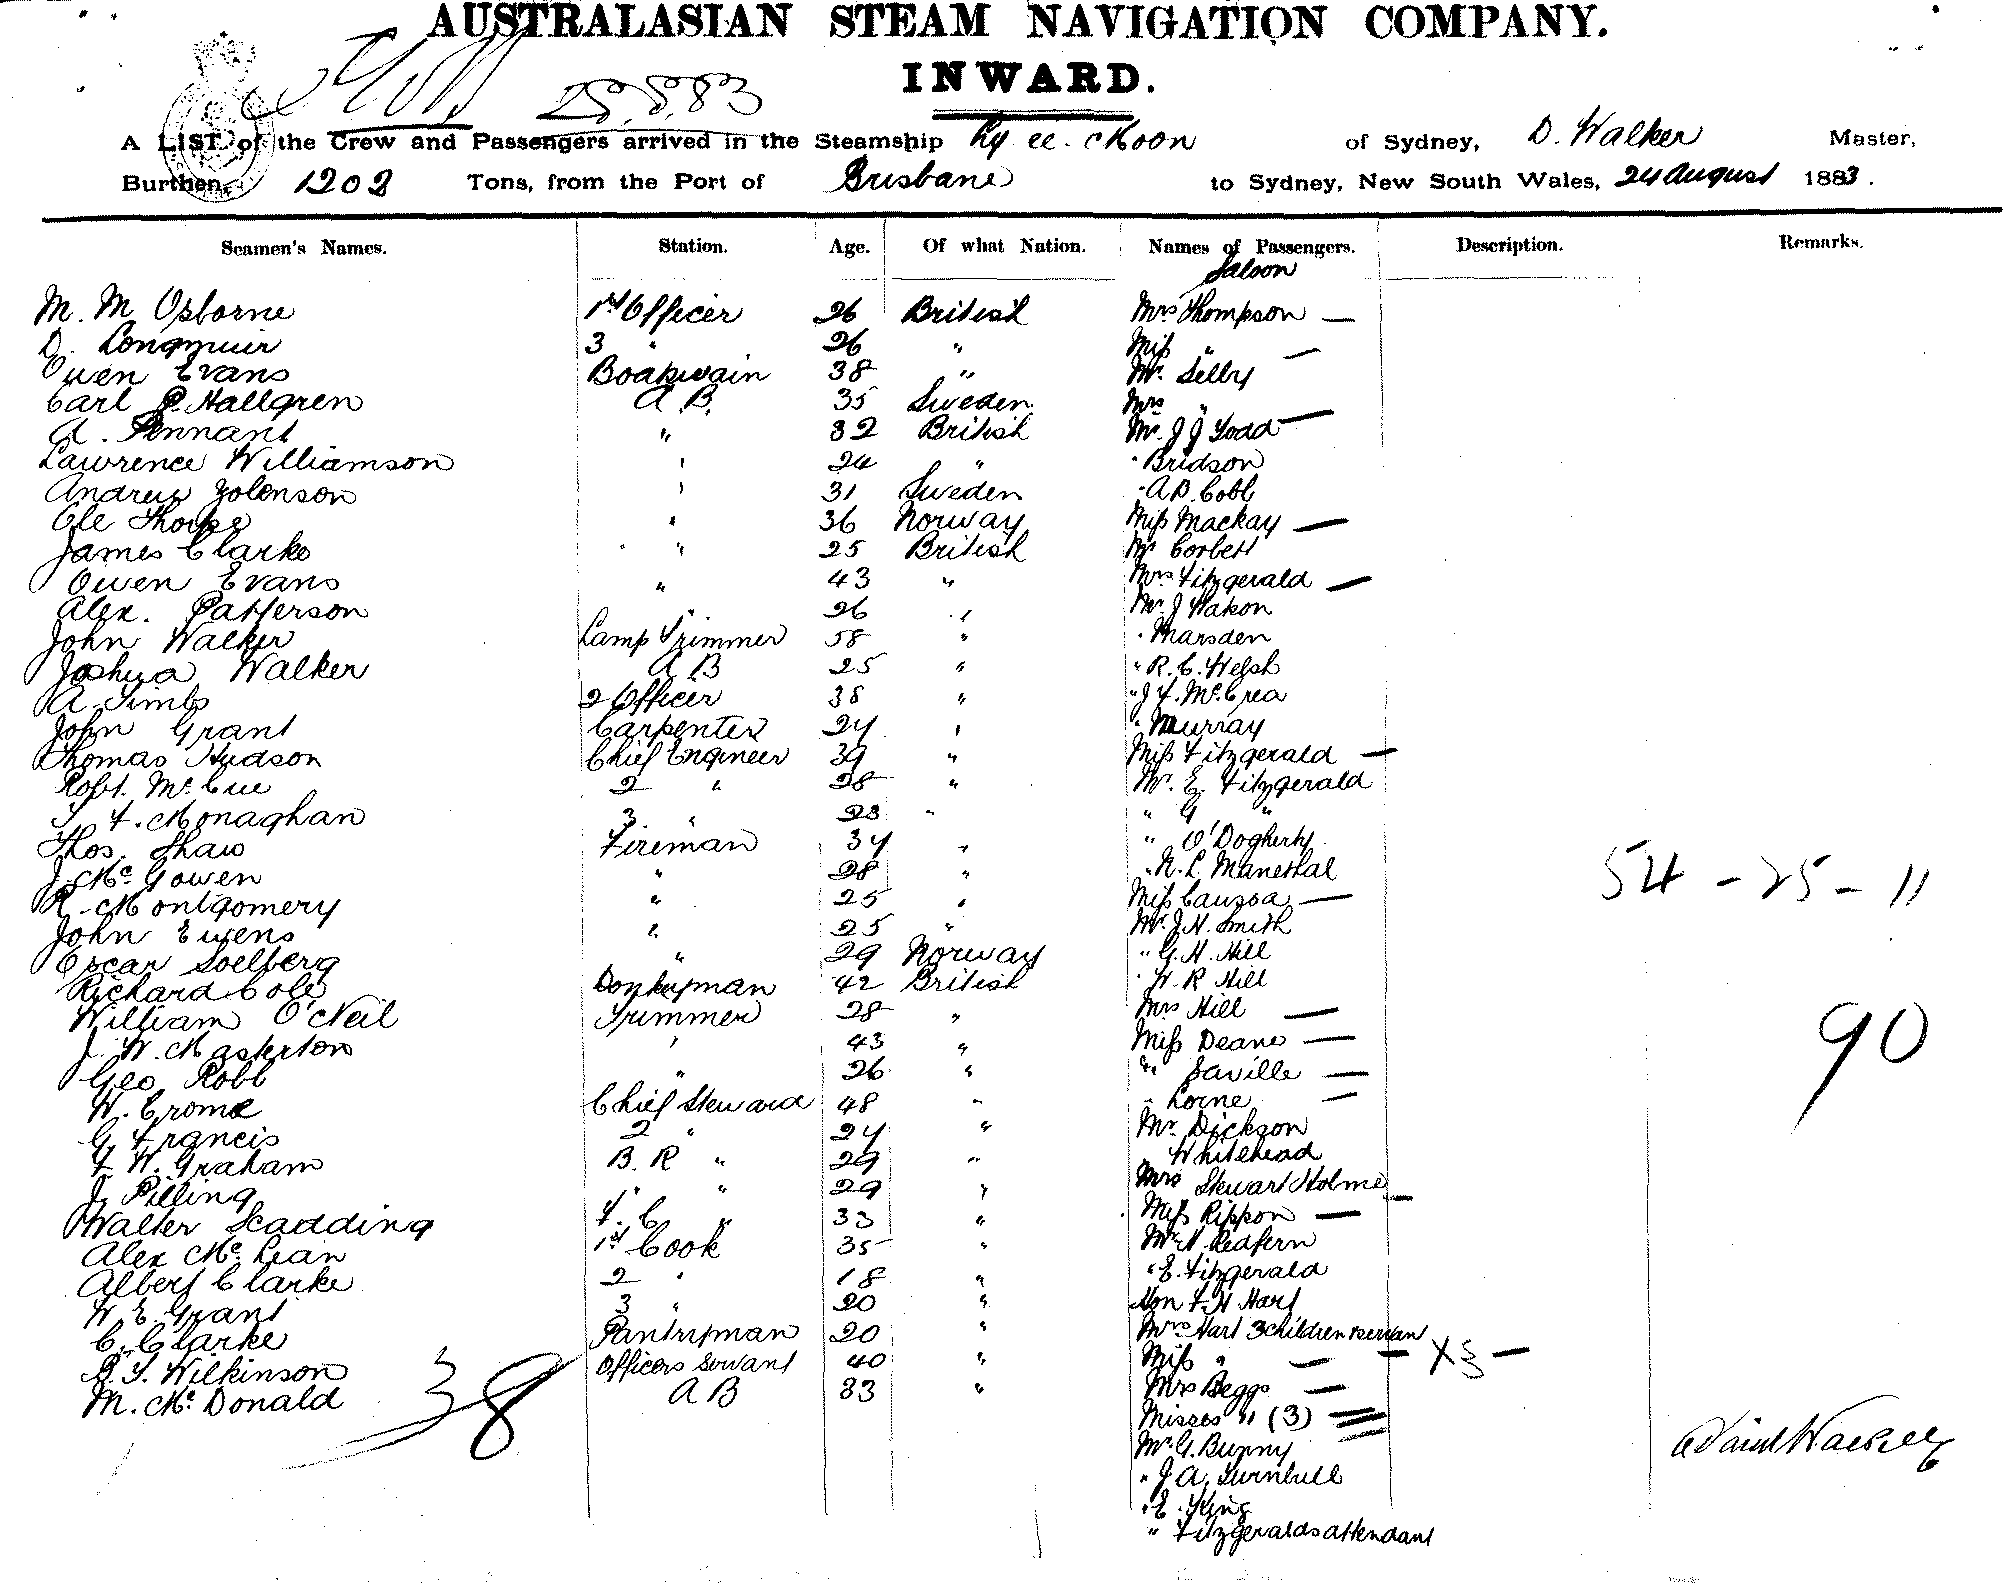 AUSTRALASIAN STEAM NAVIGATION COMPANY.
INWARD.
25.8.83
A LIST of the Crew and Passengers arrived in the Steamship Ly ee. Moon of Sydney, D. Walker Master,
Burthen, 1202 Tons, from the Port of Brisbane to Sydney, New South Wales, 24 August 1883.
Seamen's Names. Station. Age. Of what Nation. Names of Passengers. Description. Remarks.
Saloon
M. M Osborne 1st Officer 26 British Mrs Thompson —
D. Longmuir 3 " 26 " Miss " —
Owen Evans Boatswain 38 " Mr. Selby
Carl P. Hallgren A B. 35 Sweden Mrs " —
A. Pennant " 32 British Mr. J J Todd
Lawrence Williamson " 24 " " Bridson
Andrew " 31 Sweden " A B. Cobb
Ole " 36 Norway Miss Mackay —
James Clarke " 25 British Mr Corbett
Owen Evans " 43 " Mrs Fitzgerald —
Alex. Patterson " 26 " Mr. J
John Walker Lamp Trimmer 58 " " Marsden
Joshua Walker A B 25 " " R. C. Welsh
A. Timbs 2 Officer 38 " " J F. McCrea
John Grant Carpenter 24 " " Murray
Thomas Hudson Chief Engineer 39 " Miss Fitzgerald —
Robt. McCue 2 " 28 " Mr. E. Fitzgerald
F. Monaghan 3 " 23 " " G "
Thos. Shaw Fireman 34 " " O'Dogherty
J. McGowen " 28 " " N. L. Manesthal
R. Montgomery " 25 " Miss Caussa —
John Ewens " 25 " Mr. J. H. Smith
Oscar Soelberg " 29 Norway " G. H. Hill
Richard Cole Donkeyman 42 British " W. R Hill
William O'Neil Trimmer 28 " Mrs Hill —
J. W. Masterton " 43 " Miss Deane —
Geo Robb " 26 " " Saville —
W. Crome Chief Steward 48 " " Lorne —
G Francis 2 " 24 " Mr Dickson
F W. Graham B. R " 29 " Whitehead
J. Pilling " " 29 " Mrs Stewart Holme —
Walter Scadding F. C " 33 " Miss Rippon —
Alex McLean 1st Cook 35 " Mr N. Redfern
Albert Clarke 2 " 18 " " E. Fitzgerald
W E Grant 3 " 20 " Hon F. H Hart
C. Clarke Pantryman 20 " Mrs Hart 3 children & servan
Wilkinson Officers Servant 40 " Miss " — — X 3 —
M. McDonald A B 33 " Mrs Beggs —
38
Misses " (3)
Mr. G. Bunny
" J A. Turnbull
" E. King
" Fitzgeralds attendant
54 - 25 - 11
90